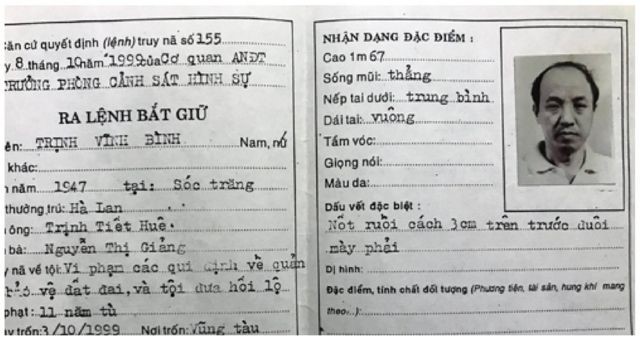 Căn cứ quyết định (lệnh) truy nã số 155
8 tháng 10 năm 1999 của Cơ quan ANĐT
TRƯỞNG PHÒNG CẢNH SÁT HÌNH SỰ
RA LỆNH BẮT GIỮ
ên: TRỊNH VĨNH BÌNH Nam, nữ
khác:
năm 1947 tại: Sóc trăng
thường trú: Hà Lan
ông: Trịnh Tiết Huê
bà: Nguyễn Thị Giảng
nã về tội: Vi phạm các qui định về quản
vệ đất đai, và tội đưa hối lộ
phạt: 11 năm tù
trốn: 3/10/1999 Nơi trốn: Vũng tàu
NHẬN DẠNG ĐẶC ĐIỂM :
Cao 1m 67
Sống mũi: thẳng
Nếp tai dưới: trung bình
Dái tai: vuông
Tầm vóc:
Giọng nói:
Màu da:
Dấu vết đặc biệt :
Nốt ruồi cách 3cm trên trước đuôi
mày phải
Dị hình:
Đặc điểm, tính chất đối tượng (Phương tiện, tài sản, hung khí mang
theo..):